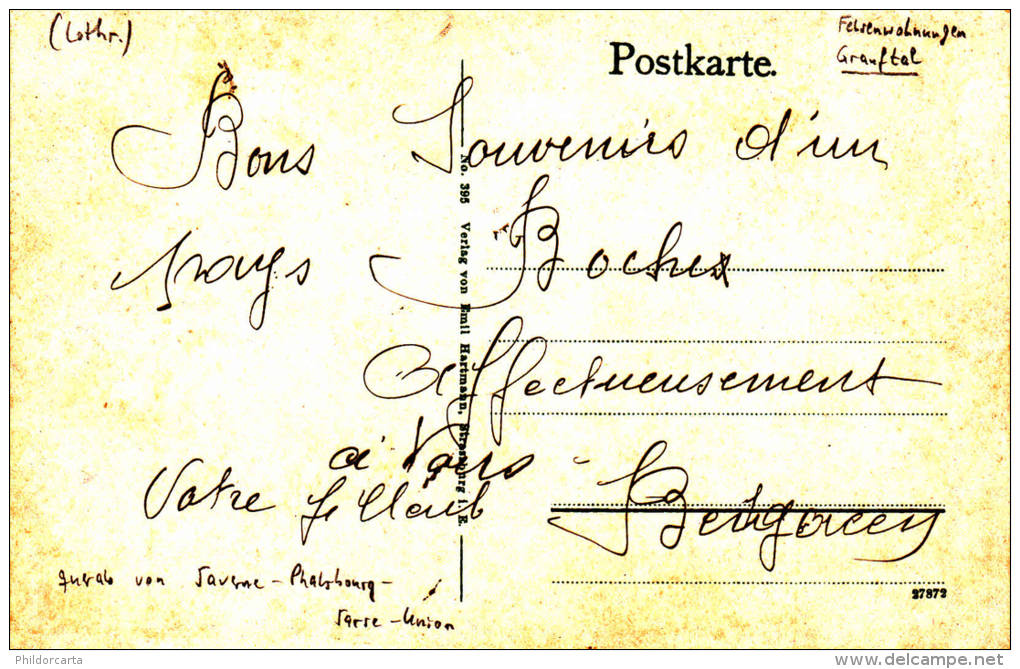 (Lothr.)
Felsenwohnungen
Grauftal
Postkarte.
Bons Souvenirs d'un
pays Boches
affectueusement
à Vous
Votre
No. 395 Verlag von Emil Hartmann, Strassburg i. E.
von Saverne - Phalsbourg -
Sarre - Union
27872
Phildorcarta
www.delcampe.net